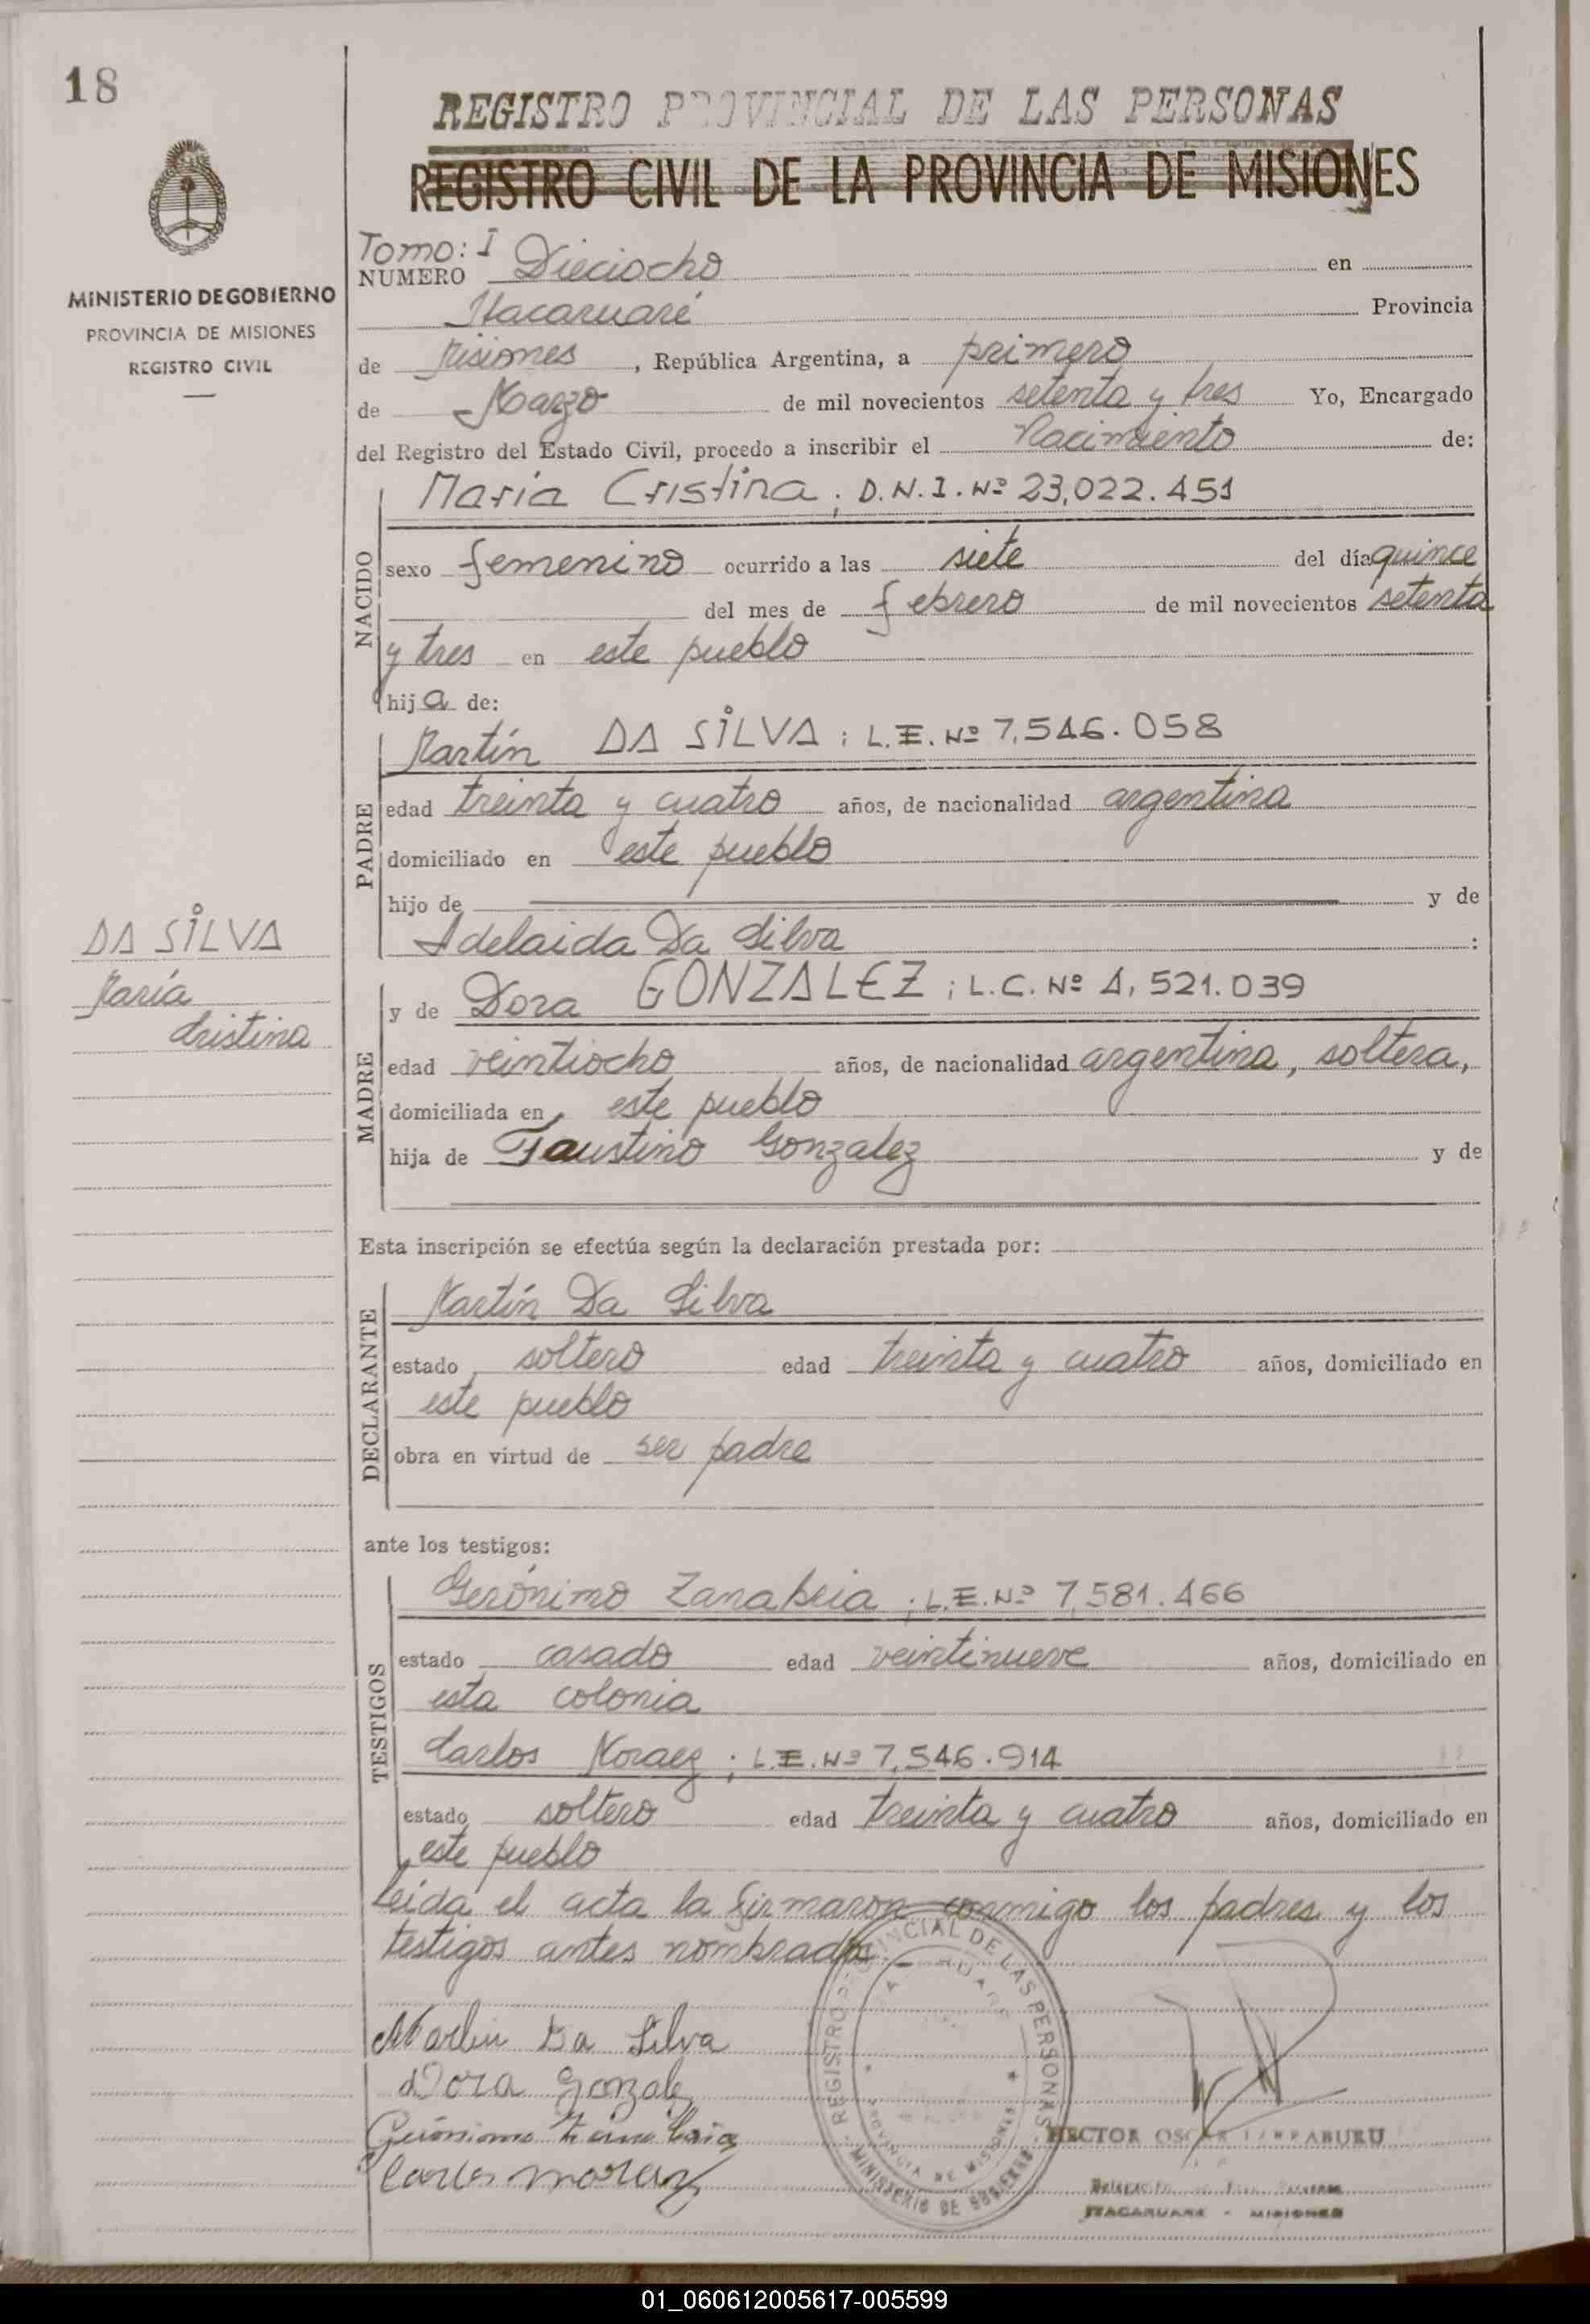 18
REGISTRO PROVINCIAL DE LAS PERSONAS
REGISTRO CIVIL DE LA PROVINCIA DE MISIONES
MINISTERIO DE GOBIERNO
PROVINCIA DE MISIONES
REGISTRO CIVIL
Tomo: I
NUMERO Dieciocho en
Itacaruaré Provincia
de Misiones, República Argentina, a primero
de Marzo de mil novecientos setenta y tres Yo, Encargado
del Registro del Estado Civil, procedo a inscribir el Nacimiento de:
NACIDO
María Cristina; D.N.I. Nº 23,022.451
sexo femenino ocurrido a las siete del día quince
del mes de febrero de mil novecientos setenta
y tres en este pueblo
hija de:
PADRE
Martín DA SILVA; L.E. Nº 7,546.058
edad treinta y cuatro años, de nacionalidad argentina
domiciliado en este pueblo
hijo de y de
Adelaida Da Silva :
DA SILVA
María
Cristina
MADRE
y de Dora GONZALEZ; L.C. Nº 4,521.039
edad veintiocho años, de nacionalidad argentina, soltera,
domiciliada en este pueblo
hija de Faustino Gonzalez y de
Esta inscripción se efectúa según la declaración prestada por:
DECLARANTE
Martín Da Silva
estado soltero edad treinta y cuatro años, domiciliado en
este pueblo
obra en virtud de ser padre
ante los testigos:
TESTIGOS
Gerónimo Zanabria; L.E. Nº 7,581.466
estado casado edad veintinueve años, domiciliado en
esta colonia
Carlos Moraez; L.E. Nº 7,546.914
estado soltero edad treinta y cuatro años, domiciliado en
este pueblo
Leida el acta la firmaron conmigo los padres y los
testigos antes nombrados.-
Martin Da Silva
Dora Gonzalez
Gerónimo Zanabria
Carlos Moraez
REGISTRO PROVINCIAL DE LAS PERSONAS
PROVINCIA DE MISIONES
MINISTERIO DE GOBIERNO
HECTOR OSCAR
ITACARUARE - MISIONES
01_060612005617-005599